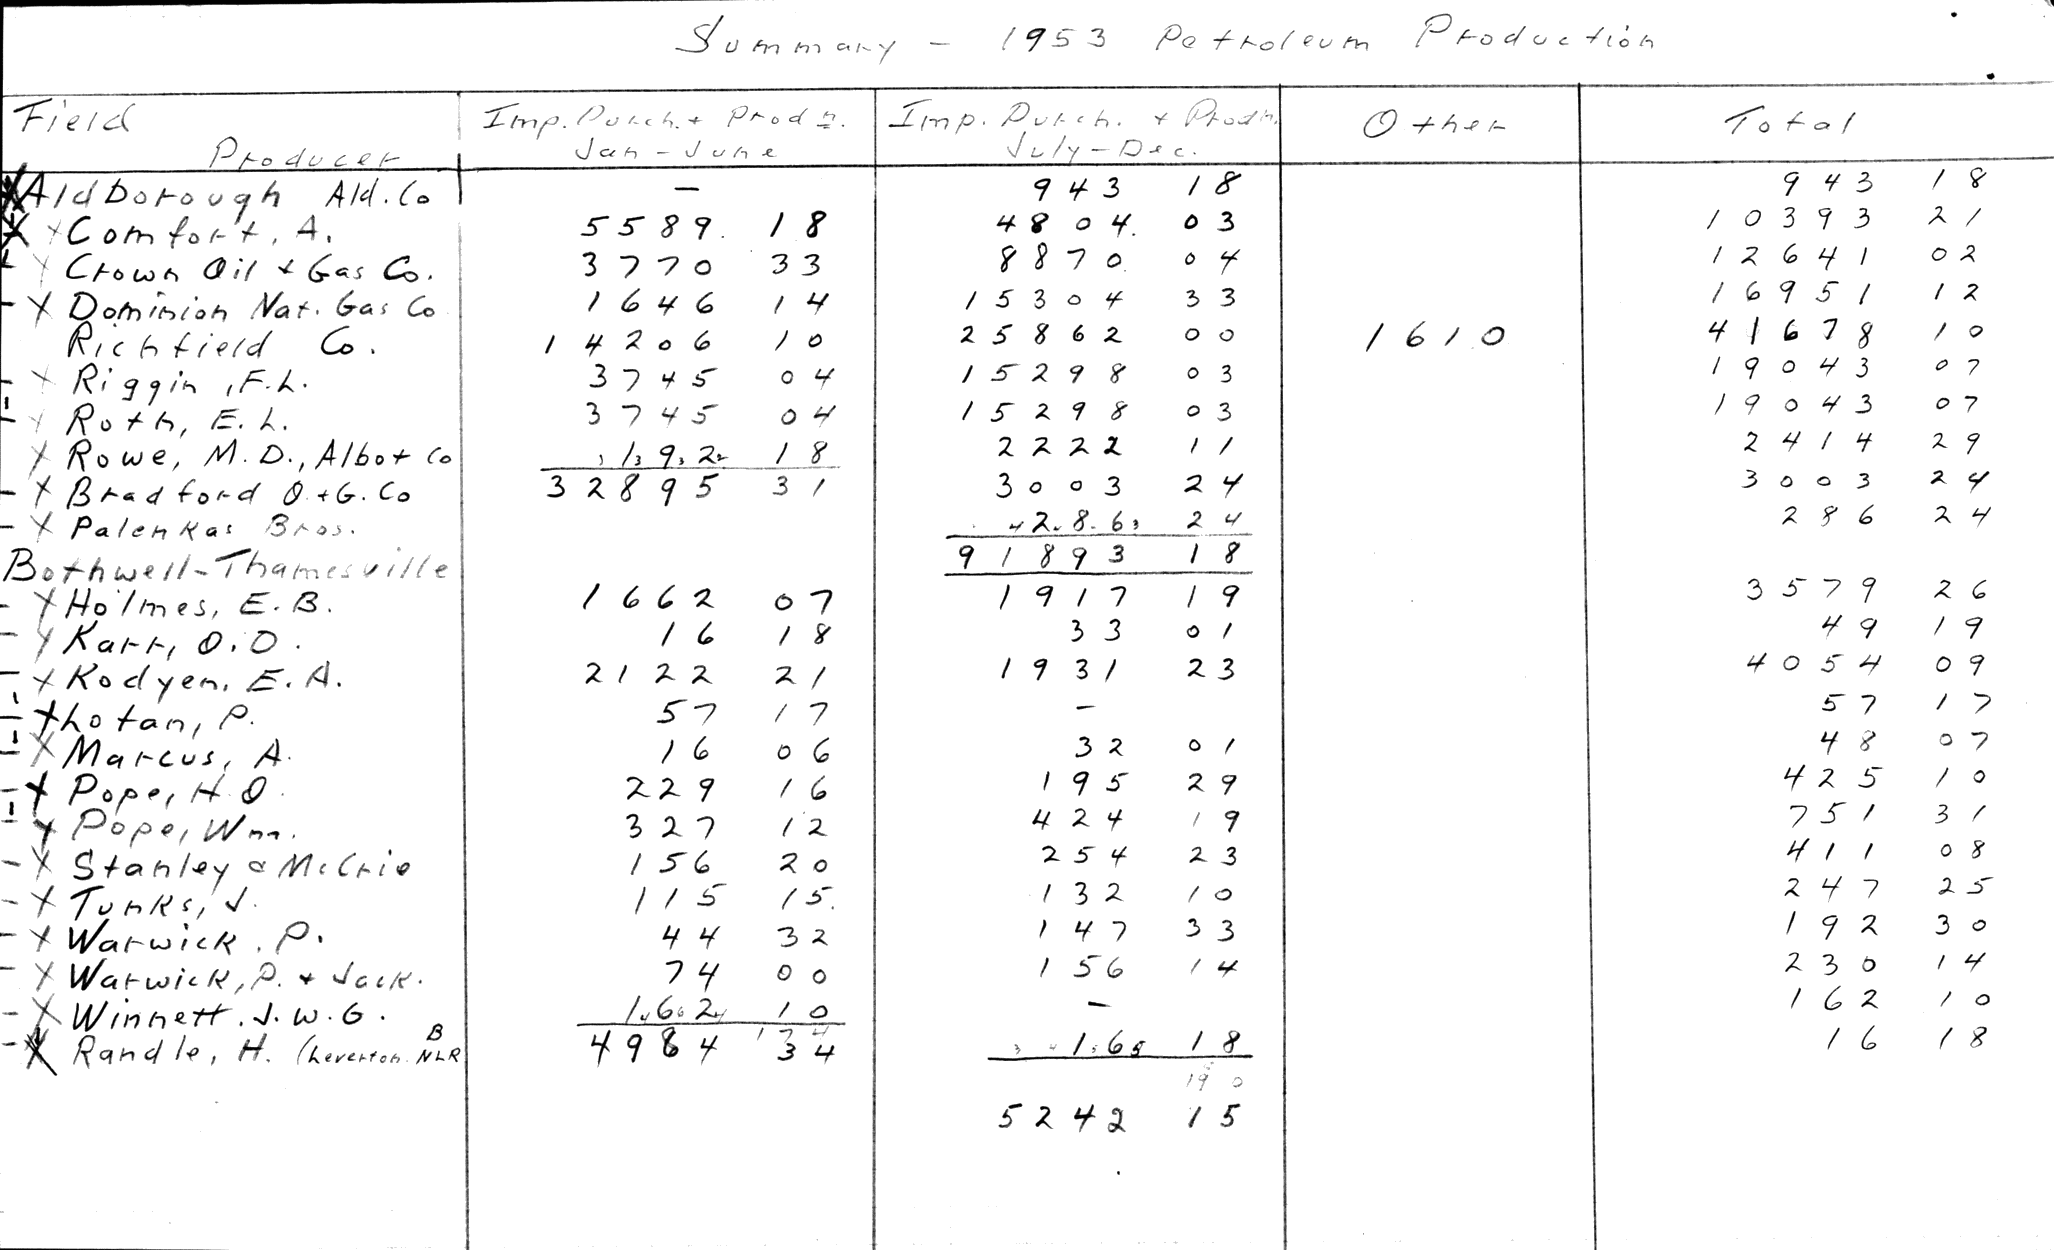 Summary - 1953 Petroleum Production
Field Producer | Imp. Purch. + Prodn. Jan - June | Imp. Purch. + Prodn. July - Dec. | Other | Total
Aldborough Ald. Co | — | 943 18 | | 943 18
x Comfort, A. | 5589 18 | 4804 03 | | 10393 21
x Crown Oil + Gas Co. | 3770 33 | 8870 04 | | 12641 02
- x Dominion Nat. Gas Co | 1646 14 | 15304 33 | | 16951 12
Richfield Co. | 14206 10 | 25862 00 | 1610 | 41678 10
- x Riggin, F.L. | 3745 04 | 15298 03 | | 19043 07
- x Roth, E.L. | 3745 04 | 15298 03 | | 19043 07
x Rowe, M.D., Albot Co | 192 18 | 2222 11 | | 2414 29
- x Bradford O.+G. Co | 32895 31 | 3003 24 | | 3003 24
- x Palenkas Bros. | | 286 24 | | 286 24
Bothwell-Thamesville | | 91893 18
- x Holmes, E.B. | 1662 07 | 1917 19 | | 3579 26
- x Karr, O.O. | 16 18 | 33 01 | | 49 19
- x Kodyen, E.A. | 2122 21 | 1931 23 | | 4054 09
- x Lotan, P. | 57 17 | — | | 57 17
- x Marcus, A. | 16 06 | 32 01 | | 48 07
- x Pope, H.O. | 229 16 | 195 29 | | 425 10
- x Pope, Wm. | 327 12 | 424 19 | | 751 31
- x Stanley & McCrie | 156 20 | 254 23 | | 411 08
- x Tunks, J. | 115 15 | 132 10 | | 247 25
- x Warwick, P. | 44 32 | 147 33 | | 192 30
- x Warwick, P. + Jack. | 74 00 | 156 14 | | 230 14
- x Winnett, J.W.G. | 162 10 | — | | 162 10
- x Randle, H. (Leverton B NLR | 4984 34 | 16 18 | | 16 18
5242 15